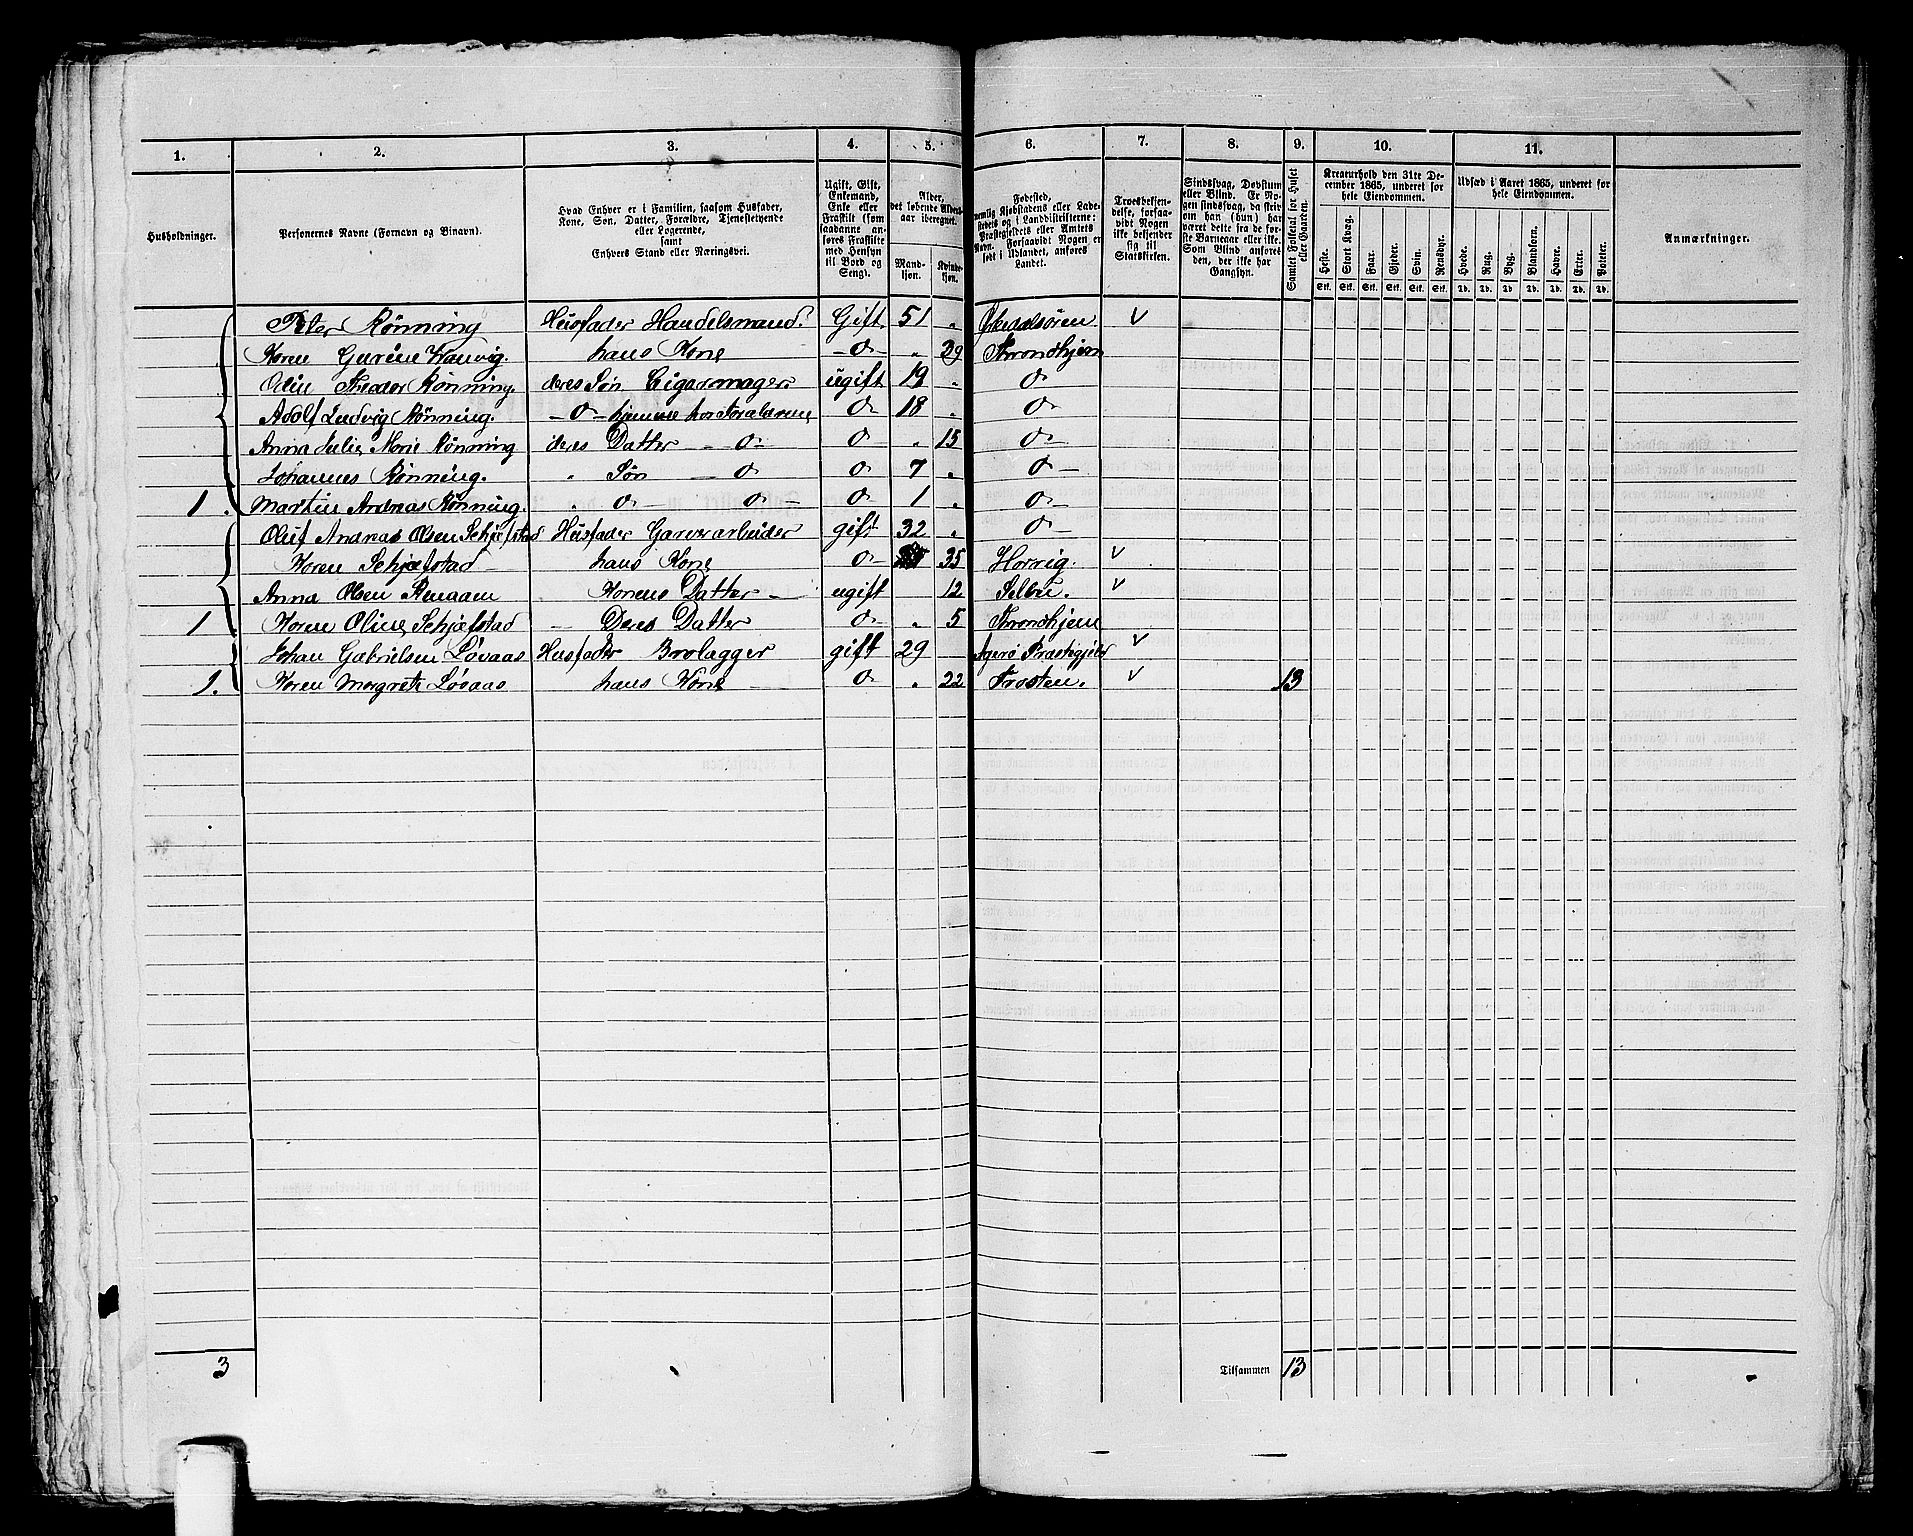 1. 2. 3. 4. 5. 6. 7. 8. 9. 10. 11.
Husholdninger.
Personernes Navne (Fornavn og Binavn).
Hvad Enhver er i Familien, saasom Husfader, Kone, Søn, Datter, Forældre, Tjenestetyende eller Logerende, samt Enhvers Stand eller Næringsvei.
Ugift, Gift, Enkemand, Enke eller Fraskilt (som saadanne anføres Fraskilte med Hensyn til Bord og Seng).
Alder, det løbende Alders-aar iberegnet.
Mand-kjøn. Kvinde-kjøn.
Fødested, nemlig Kjøbstadens eller Ladestedets og i Landdistrikterne: Præstegjeldets eller Amtets Navn. Forsaavidt Nogen er født i Udlandet, anføres Landet.
Troesbekjendelse, forsaavidt Nogen ikke bekjender sig til Statskirken.
Sindssvag, Døvstum eller Blind. Er Nogen sindssvag, da skrives om han (hun) har været dette fra de første Barneaar eller ikke. Som Blind anføres den, der ikke har Gangsyn.
Samlet Folketal for Huset eller Gaarden.
Kreaturhold den 31te December 1865, underet for hele Eiendommen.
Heste. Stort Kvæg. Faar. Gjeder. Svin. Rensdyr.
Stk. Stk. Stk. Stk. Stk. Stk.
Udsæd i Aaret 1865, underet for hele Eiendommen.
Hvede. Rug. Byg. Blandkorn. Havre. Erter. Poteter.
Td. Td. Td. Td. Td. Td. Td.
Anmærkninger.
Peter Rønning Husfader Handelsmand. Gift 51 " Ørkedalsøren V
Karen Gurine Hans Kone -o- " 39 Throndhjem
Odin Theodor Rønning. deres Søn Cigarmager ugift 19 " o-
Adolf Ludvig Rønning. -o- hjemme hos Forældrene o- 18 " o-
Anna Julie Marie Rønning deres Datter -o- o- " 15 o-
Johannes Rønning. " Søn -o o 7 " o-
1. Martin Andreas Rønning. " o- o- o 1 " o-
Oluf Andreas Olsen Schjefstad Husfader Garverarbeider gift 32 " o-
Karen Schjefstad hans Kone o- 35 V
Anna Olsen Konens Datter ugift 12 Selbu. V
1 Karen Oline Schjefstad Deres Datter o- " 5 Throndhjem
Johan Gabrielsen Løvaas Husfader Brolægger gift 29 V
1. Karen Margrete Løvaas hans Kone o- " 22 Frosten. V 13
3 Tilsammen 13